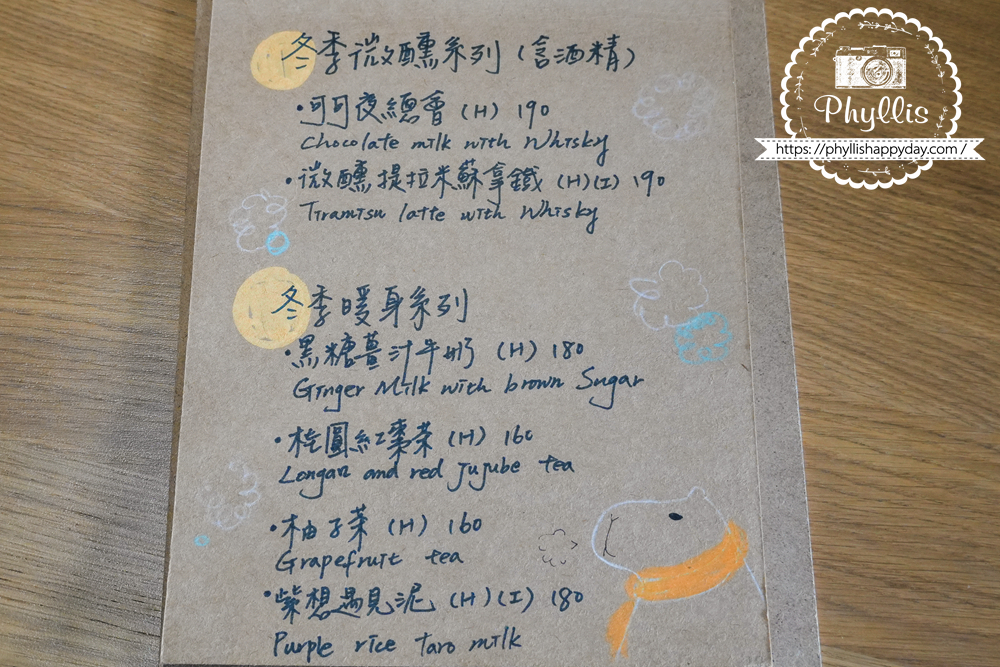 冬季微醺系列(含酒精)
•可可夜總會 (H) 190
Chocolate milk with Whisky
•微醺提拉米蘇拿鐵 (H)(I) 190
Tiramisu latte with Whisky
冬季暖身系列
•黑糖薑汁牛奶 (H) 180
Ginger Milk with brown Sugar
•桂圓紅棗茶 (H) 160
Longan and red Jujube tea
•柚子茶 (H) 160
Grapefruit tea
•紫想遇見泥 (H)(I) 180
Purple rice Taro milk
Phyllis
https://phyllishappyday.com/